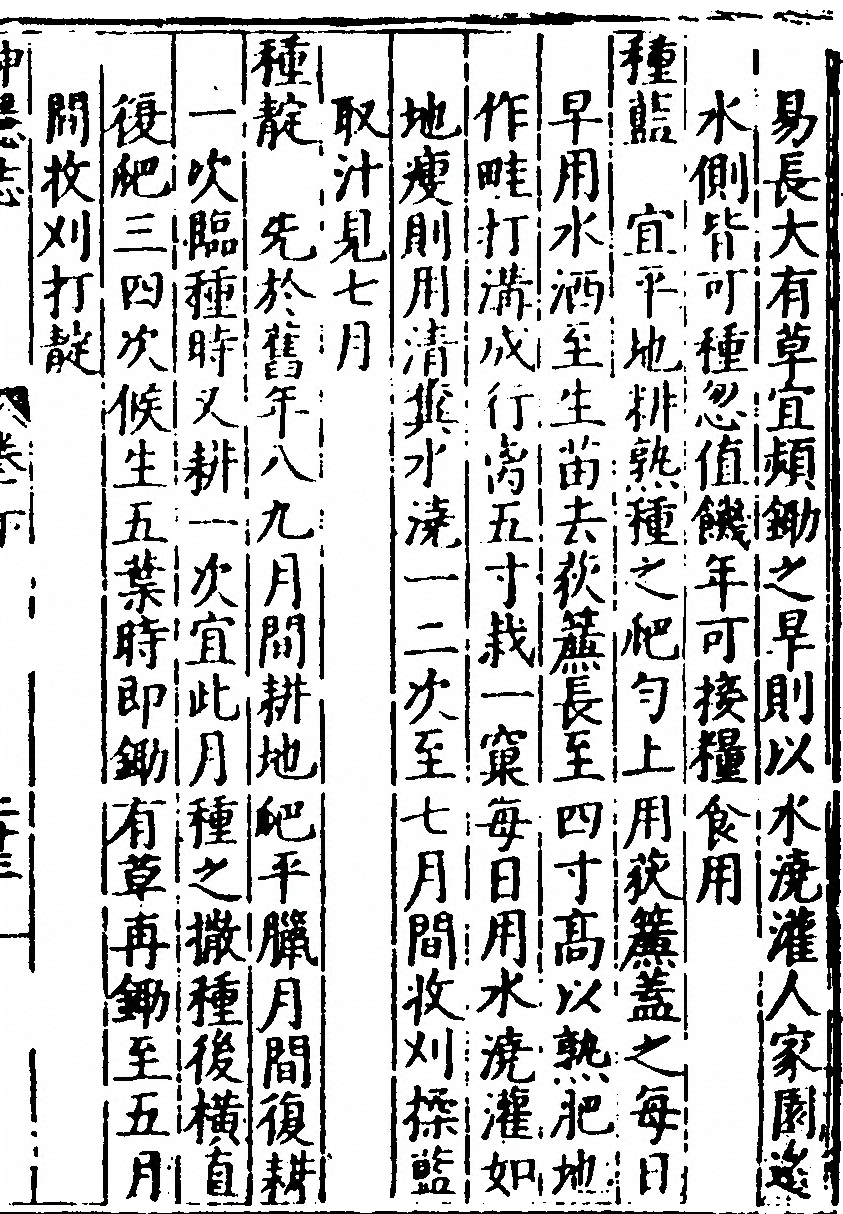 易長大有草宜頻鋤之旱則以水澆灌人家園邊
水側皆可種忽值饑年可接糧食用
種藍　宜平地耕熟種之爬勻上用荻簾蓋之每日
早用水洒至生苗去荻簾長至四寸高以熟肥地
作畦打溝成行离五寸栽一窠每日用水澆灌如
地瘦則用清糞水澆一二次至七月間收刈揉藍
取汁見七月
種靛　先於舊年八九月間耕地爬平臘月間復耕
一次臨種時又耕一次宜此月種之撒種後橫直
復爬三四次候生五葉時即鋤有草再鋤至五月
間收刈打靛
卷下　二十三